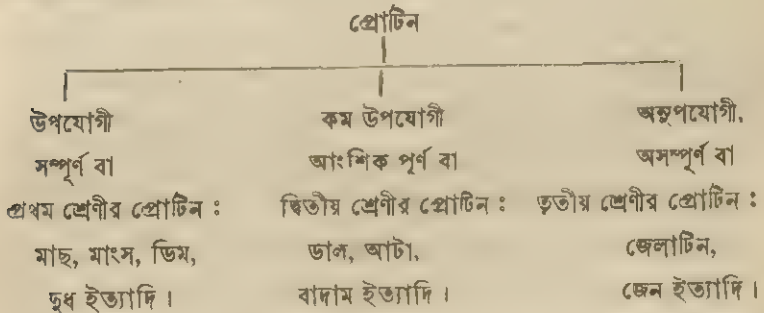 প্রোটিন
উপযোগী
সম্পূর্ণ বা
প্রথম শ্রেণীর প্রোটিন :
মাছ, মাংস, ডিম,
দুধ ইত্যাদি ।
কম উপযোগী
আংশিক পূর্ণ বা
দ্বিতীয় শ্রেণীর প্রোটিন :
ডাল, আটা,
বাদাম ইত্যাদি ।
অনুপযোগী,
অসম্পূর্ণ বা
তৃতীয় শ্রেণীর প্রোটিন :
জেলাটিন,
জেন ইত্যাদি ।